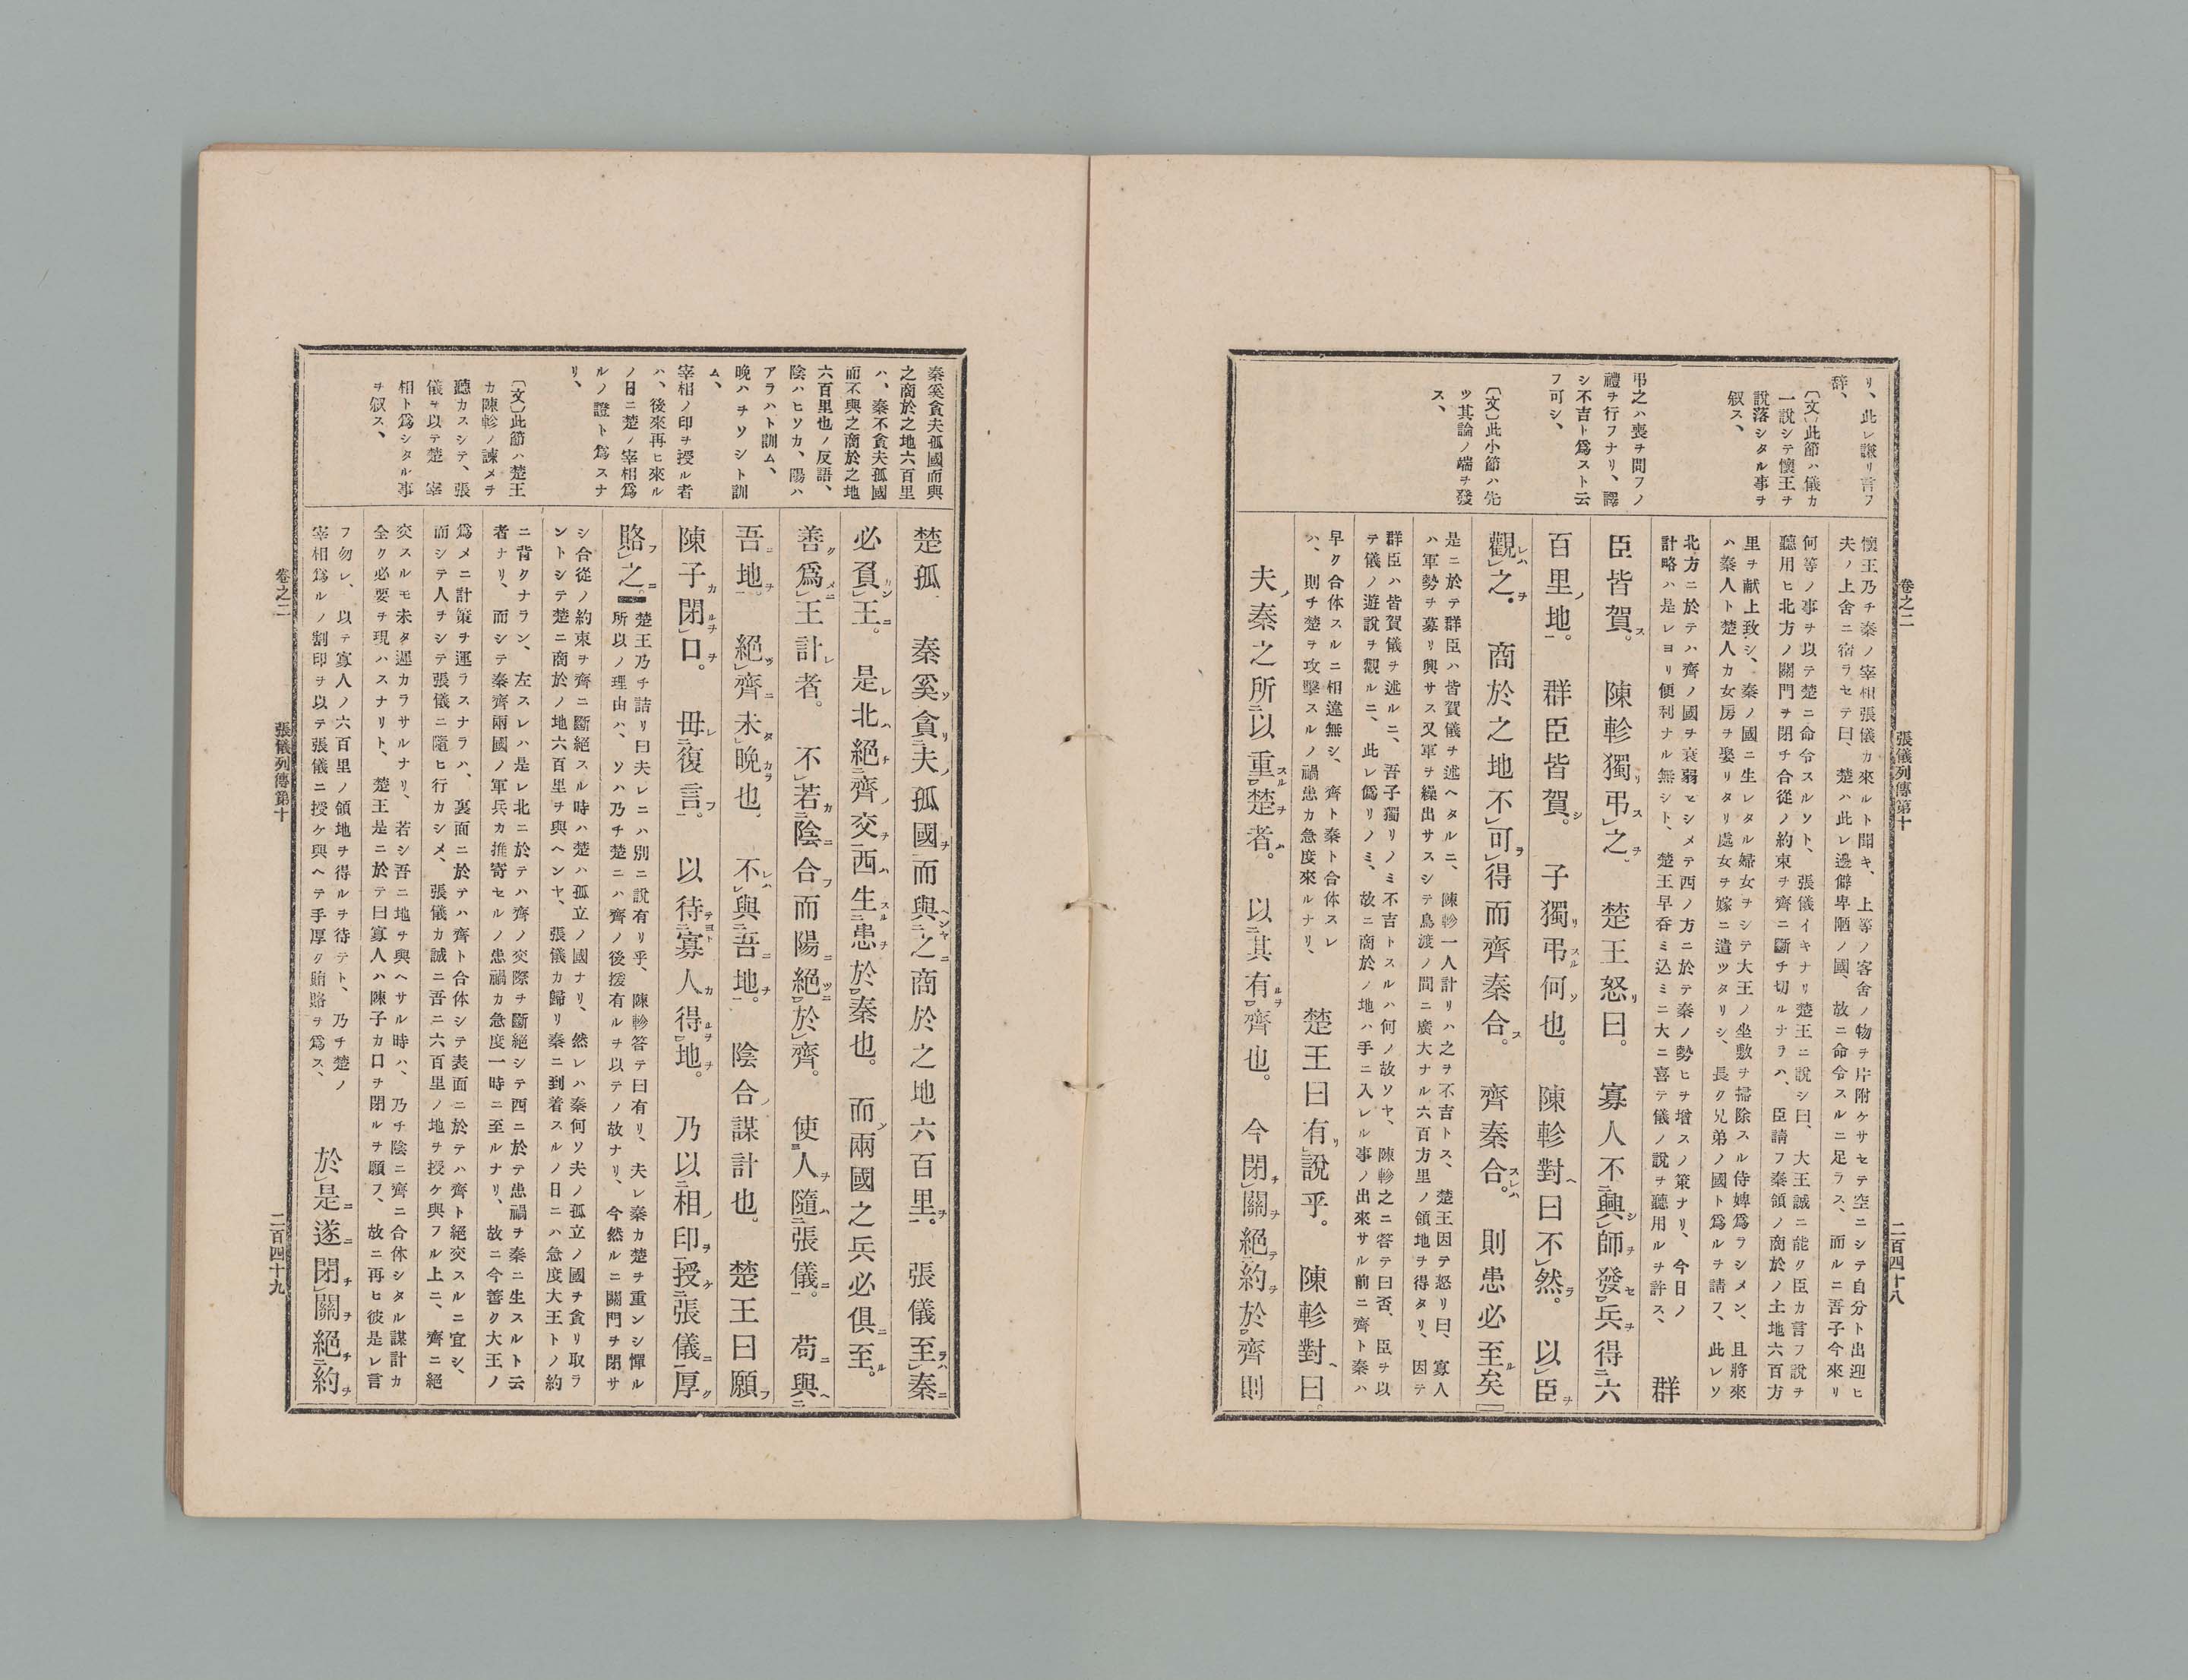 卷之二　張儀列傳第十　二百四十八
リ、此レ謙リ言フ
辞、
〔文〕此節ハ儀カ
一説シテ懷王ヲ
説落シタル事ヲ
叙ス、
弔之ハ喪ヲ問フノ
禮ヲ行フナリ、譯
シ不吉ト爲スト云
フ可シ、
〔文〕此小節ハ先
ツ其論ノ端ヲ發
ス、
懷王乃チ秦ノ宰相張儀カ來ルト聞キ、上等ノ客舍ノ物ヲ片附ケサセテ空ニシテ自分ト出迎ヒ
夫ノ上舍ニ宿ラセテ曰、楚ハ此レ邊僻卑陋ノ國、故ニ命令スルニ足ラス、而ルニ吾子今來リ
何等ノ事ヲ以テ楚ニ命令スルソト、張儀イキナリ楚王ニ説シ曰、大王誠ニ能ク臣カ言フ説ヲ
聽用ヒ北方ノ關門ヲ閉チ合從ノ約束ヲ齊ニ斷チ切ルナラハ、臣請フ秦領ノ商於ノ土地六百方
里ヲ献上致シ、秦ノ國ニ生レタル婦女ヲシテ大王ノ坐敷ヲ掃除スル侍婢爲ラシメン、且將來
ハ秦人ト楚人カ女房ヲ娶リタリ處女ヲ嫁ニ遣ツタリシ、長ク兄弟ノ國ト爲ルヲ請フ、此レソ
北方ニ於テハ齊ノ國ヲ衰弱ヒシメテ西ノ方ニ於テ秦ノ勢ヒヲ增スノ策ナリ、今日ノ
計略ハ是レヨリ便利ナル無シト、楚王早呑ミ込ミニ大ニ喜テ儀ノ説ヲ聽用ルヲ許ス、
群
臣皆賀。陳軫獨弔之。楚王怒曰。寡人不興師發兵得六
百里地。群臣皆賀。子獨弔何也。陳軫對曰不然。以臣
觀之。商於之地不可得而齊秦合。齊秦合。則患必至矣
是ニ於テ群臣ハ皆賀儀ヲ述ヘタルニ、陳軫一人計リハ之ヲ不吉トス、楚王因テ怒リ曰、寡人
ハ軍勢ヲ募リ興サス又軍ヲ繰出サスシテ鳥渡ノ間ニ廣大ナル六百方里ノ領地ヲ得タリ、因テ
群臣ハ皆賀儀ヲ述ルニ、吾子獨リノミ不吉トスルハ何ノ故ソヤ、陳軫之ニ答テ曰否、臣ヲ以
テ儀ノ遊説ヲ觀ルニ、此レ僞リノミ、故ニ商於ノ地ハ手ニ入レル事ノ出來サル前ニ齊ト秦ハ
早ク合体スルニ相違無シ、齊ト秦ト合体スレ
ハ、則チ楚ヲ攻擊スルノ禍患カ急度來ルナリ、
楚王曰有說乎。陳軫對曰。
夫秦之所以重楚者。以其有齊也。今閉關絕約於齊則
秦奚貪夫孤國而與
之商於之地六百里
ハ、秦不貪夫孤國
而不與之商於之地
六百里也ノ反語、
陰ハヒソカ、陽ハ
アラハト訓ム、
晚ハヲソシト訓
ム、
宰相ノ印ヲ授ル者
ハ、後來再ヒ來ル
ノ日ニ楚ノ宰相爲
ルノ證ト爲スナ
リ、
〔文〕此節ハ楚王
カ陳軫ノ諫メヲ
聽カスシテ、張
儀ヲ以テ楚ノ宰
相ト爲シタル事
ヲ叙ス、
楚孤　秦奚貪夫孤國而與之商於之地六百里。張儀至秦
必負王。是北絕齊交西生患於秦也。而兩國之兵必俱至。
善爲王計者。不若陰合而陽絕於齊。使人隨張儀。苟與
吾地。絕齊未晚也。不與吾地。陰合謀計也。楚王曰願
陳子閉口。毋復言。以待寡人得地。乃以相印授張儀厚
賂之。
楚王乃チ詰リ曰夫レニハ別ニ説有リ乎、陳軫答テ曰有リ、夫レ秦カ楚ヲ重ンシ憚ル
所以ノ理由ハ、ソハ乃チ楚ニハ齊ノ後援有ルヲ以テノ故ナリ、今然ルニ關門ヲ閉サ
シ合從ノ約束ヲ齊ニ斷絕スル時ハ楚ハ孤立ノ國ナリ、然レハ秦何ソ夫ノ孤立ノ國ヲ貪リ取ラ
ントシテ楚ニ商於ノ地六百里ヲ與ヘンヤ、張儀カ歸リ秦ニ到着スルノ日ニハ急度大王トノ約
ニ背クナラン、左スレハ是レ北ニ於テハ齊ノ交際ヲ斷絕シテ西ニ於テ患禍ヲ秦ニ生スルト云
者ナリ、而シテ秦齊兩國ノ軍兵カ推寄セルノ患禍カ急度一時ニ至ルナリ、故ニ今善ク大王ノ
爲メニ計策ヲ運ラスナラハ、裏面ニ於テハ齊ト合体シテ表面ニ於テハ齊ト絕交スルニ宜シ、
而シテ人ヲシテ張儀ニ隨ヒ行カシメ、張儀カ誠ニ吾ニ六百里ノ地ヲ授ケ與フル上ニ、齊ニ絕
交スルモ未タ遲カラサルナリ、若シ吾ニ地ヲ與ヘサル時ハ、乃チ陰ニ齊ニ合体シタル謀計カ
全ク必要ヲ現ハスナリト、楚王是ニ於テ曰寡人ハ陳子カ口ヲ閉ルヲ願フ、故ニ再ヒ彼是レ言
フ勿レ、以テ寡人ノ六百里ノ領地ヲ得ルヲ待テト、乃チ楚ノ
宰相爲ルノ割印ヲ以テ張儀ニ授ケ與ヘテ手厚ク賄賂ヲ爲ス、
於是遂閉關絕約
卷之二　張儀列傳第十　二百四十九